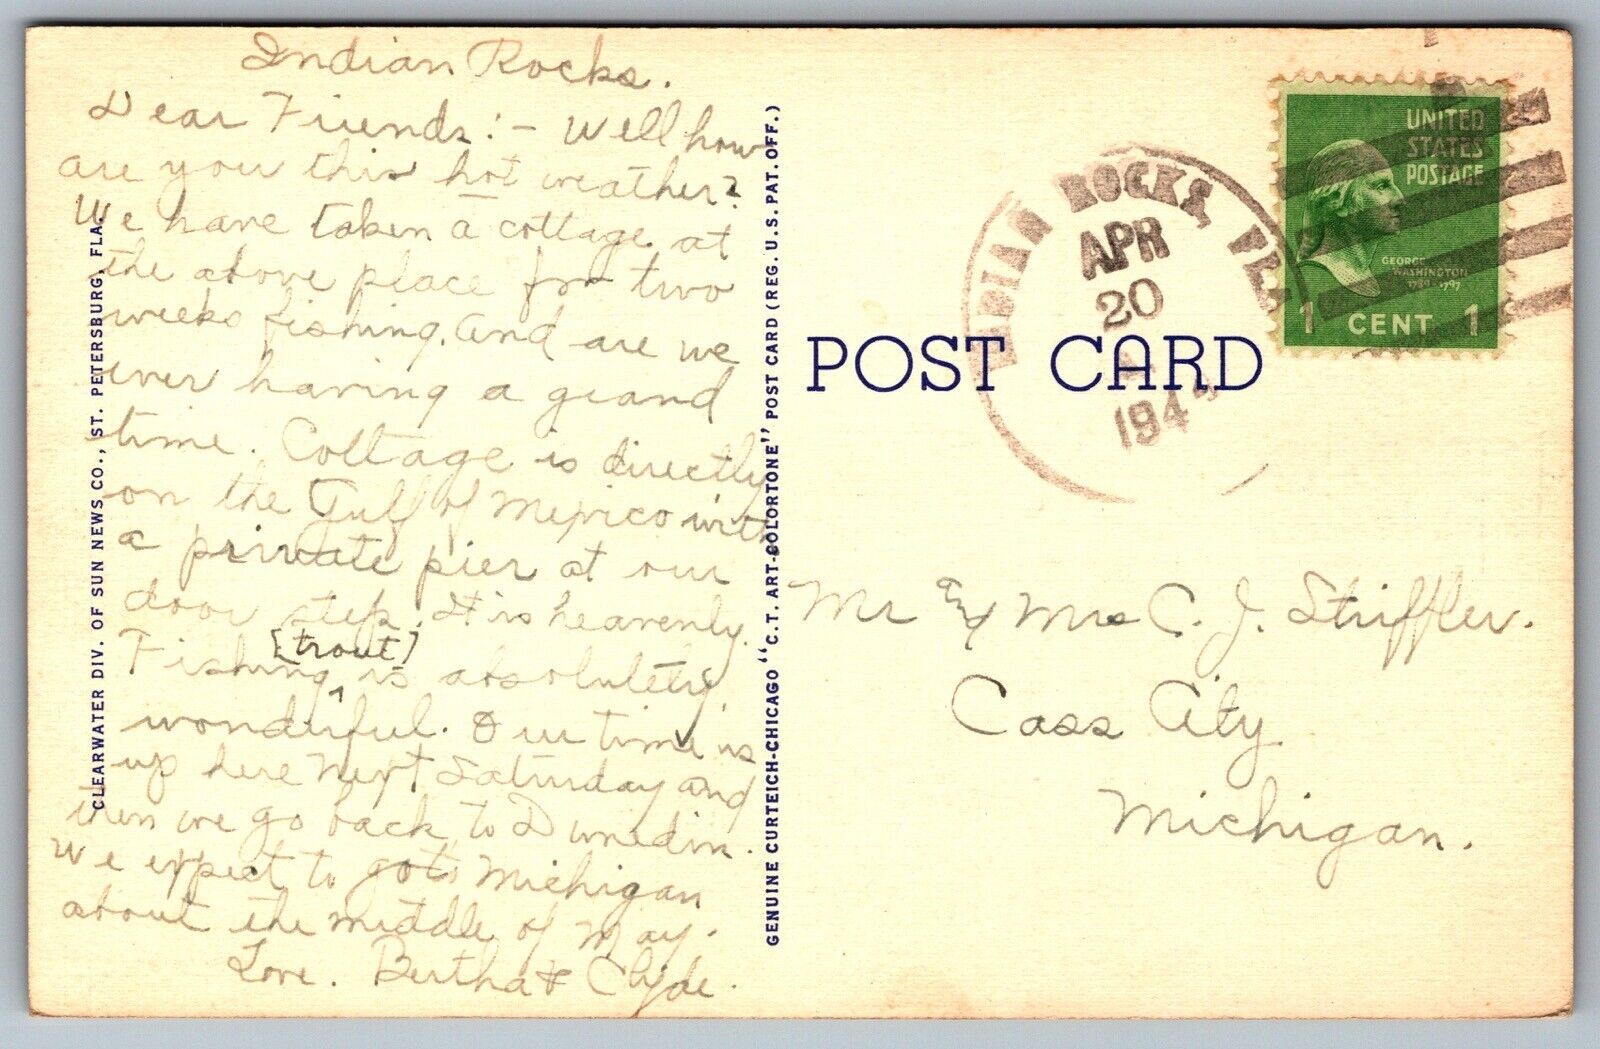 Indian Rocks.
Dear Friends:- Well how
are you this hot weather?
We have taken a cottage at
the above place for two
weeks fishing. and are we
ever having a grand
time. Cottage is directly
on the Gulf of Mexico with
a private pier at our
door step. It is heavenly.
[trout]
Fishing ^ is absolutely
wonderful. Our time is
up here next Saturday and
then we go back to Dunedin.
We expect to go to Michigan
about the middle of May.
Love. Bertha & Clyde.
CLEARWATER DIV. OF SUN NEWS CO., ST. PETERSBURG, FLA.
GENUINE CURTEICH-CHICAGO "C.T. ART-COLORTONE" POST CARD (REG. U.S. PAT. OFF.)
POST CARD
INDIAN ROCKS, FLA.
APR
20
194
UNITED
STATES
POSTAGE
GEORGE
WASHINGTON
1789-1797
1 CENT 1
Mr and Mrs C. J. Striffler.
Cass City
Michigan.